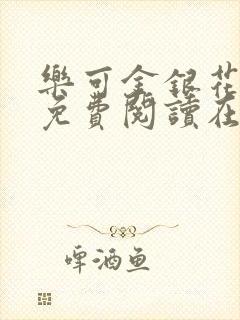 樂可金銀花
免費閱讀在
啤酒魚